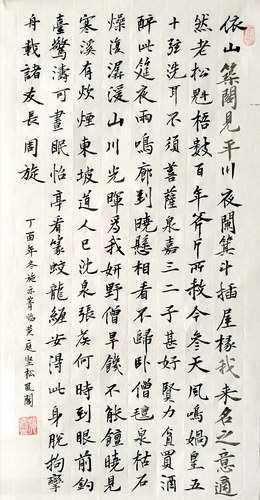 依山築閣見平川夜闌箕斗插屋椽我來名之意適
然老松魁梧數百年斧斤所赦今參天風鳴媧皇五
十弦洗耳不須菩薩泉嘉三二子甚好賢力貧買酒
醉此筵夜雨鳴廊到曉懸相看不歸臥僧氈泉枯石
燥復潺湲山川光暉為我妍野僧旱饑不能饘曉見
寒溪有炊煙東坡道人已沈泉張侯何時到眼前釣
臺驚濤可晝眠怡亭看篆蛟龍纏安得此身脫拘攣
舟載諸友長周旋
丁酉年冬施示菁臨黃庭堅松風閣